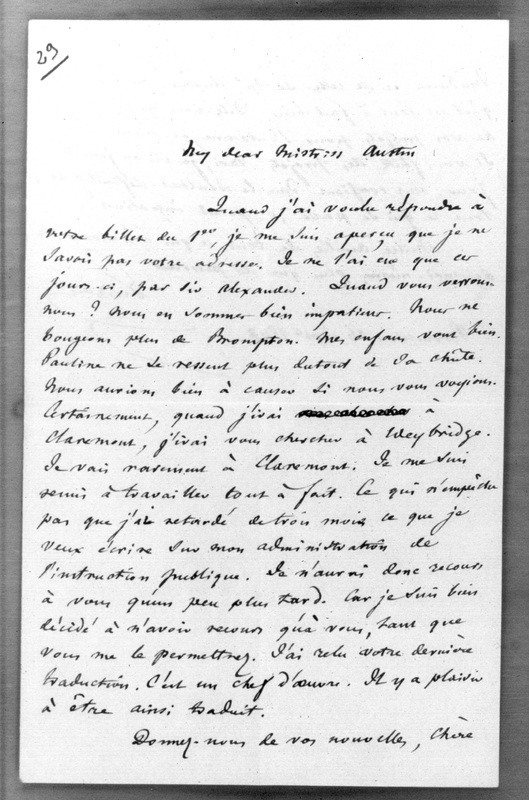 29
My dear Mistriss Austin
Quand j'ai voulu répondre à
votre billet du 1er, je me suis aperçu que je ne
savois pas votre adresse. Je ne l'ai eue que ces
jours-ci, par Sir Alexander. Quand vous verrons
nous ? Nous en sommes bien impatiens. Nous ne
bougeons plus de Brompton. Mes enfans vont bien.
Pauline ne se ressent plus du tout de sa chûte.
Nous aurions bien à causer si nous vous voyions.
Certainement, quand j'irai à
Claremont, j'irai vous chercher à Weybridge.
Je vais rarement à Claremont. Je me suis
remis à travailler tout à fait. Ce qui n'empêche
pas que j'aie retardé de trois mois ce que je
veux écrire sur mon administration de
l'instruction publique. Je n'aurai donc recours
à vous qu'un peu plus tard. Car je suis bien
décidé à n'avoir recours qu'à vous, tant que
vous me le permettrez. J'ai relu votre dernière
traduction. C'est un chef d'œuvre. Il y a plaisir
à être ainsi traduit.
Donnez-nous de vos nouvelles, chère